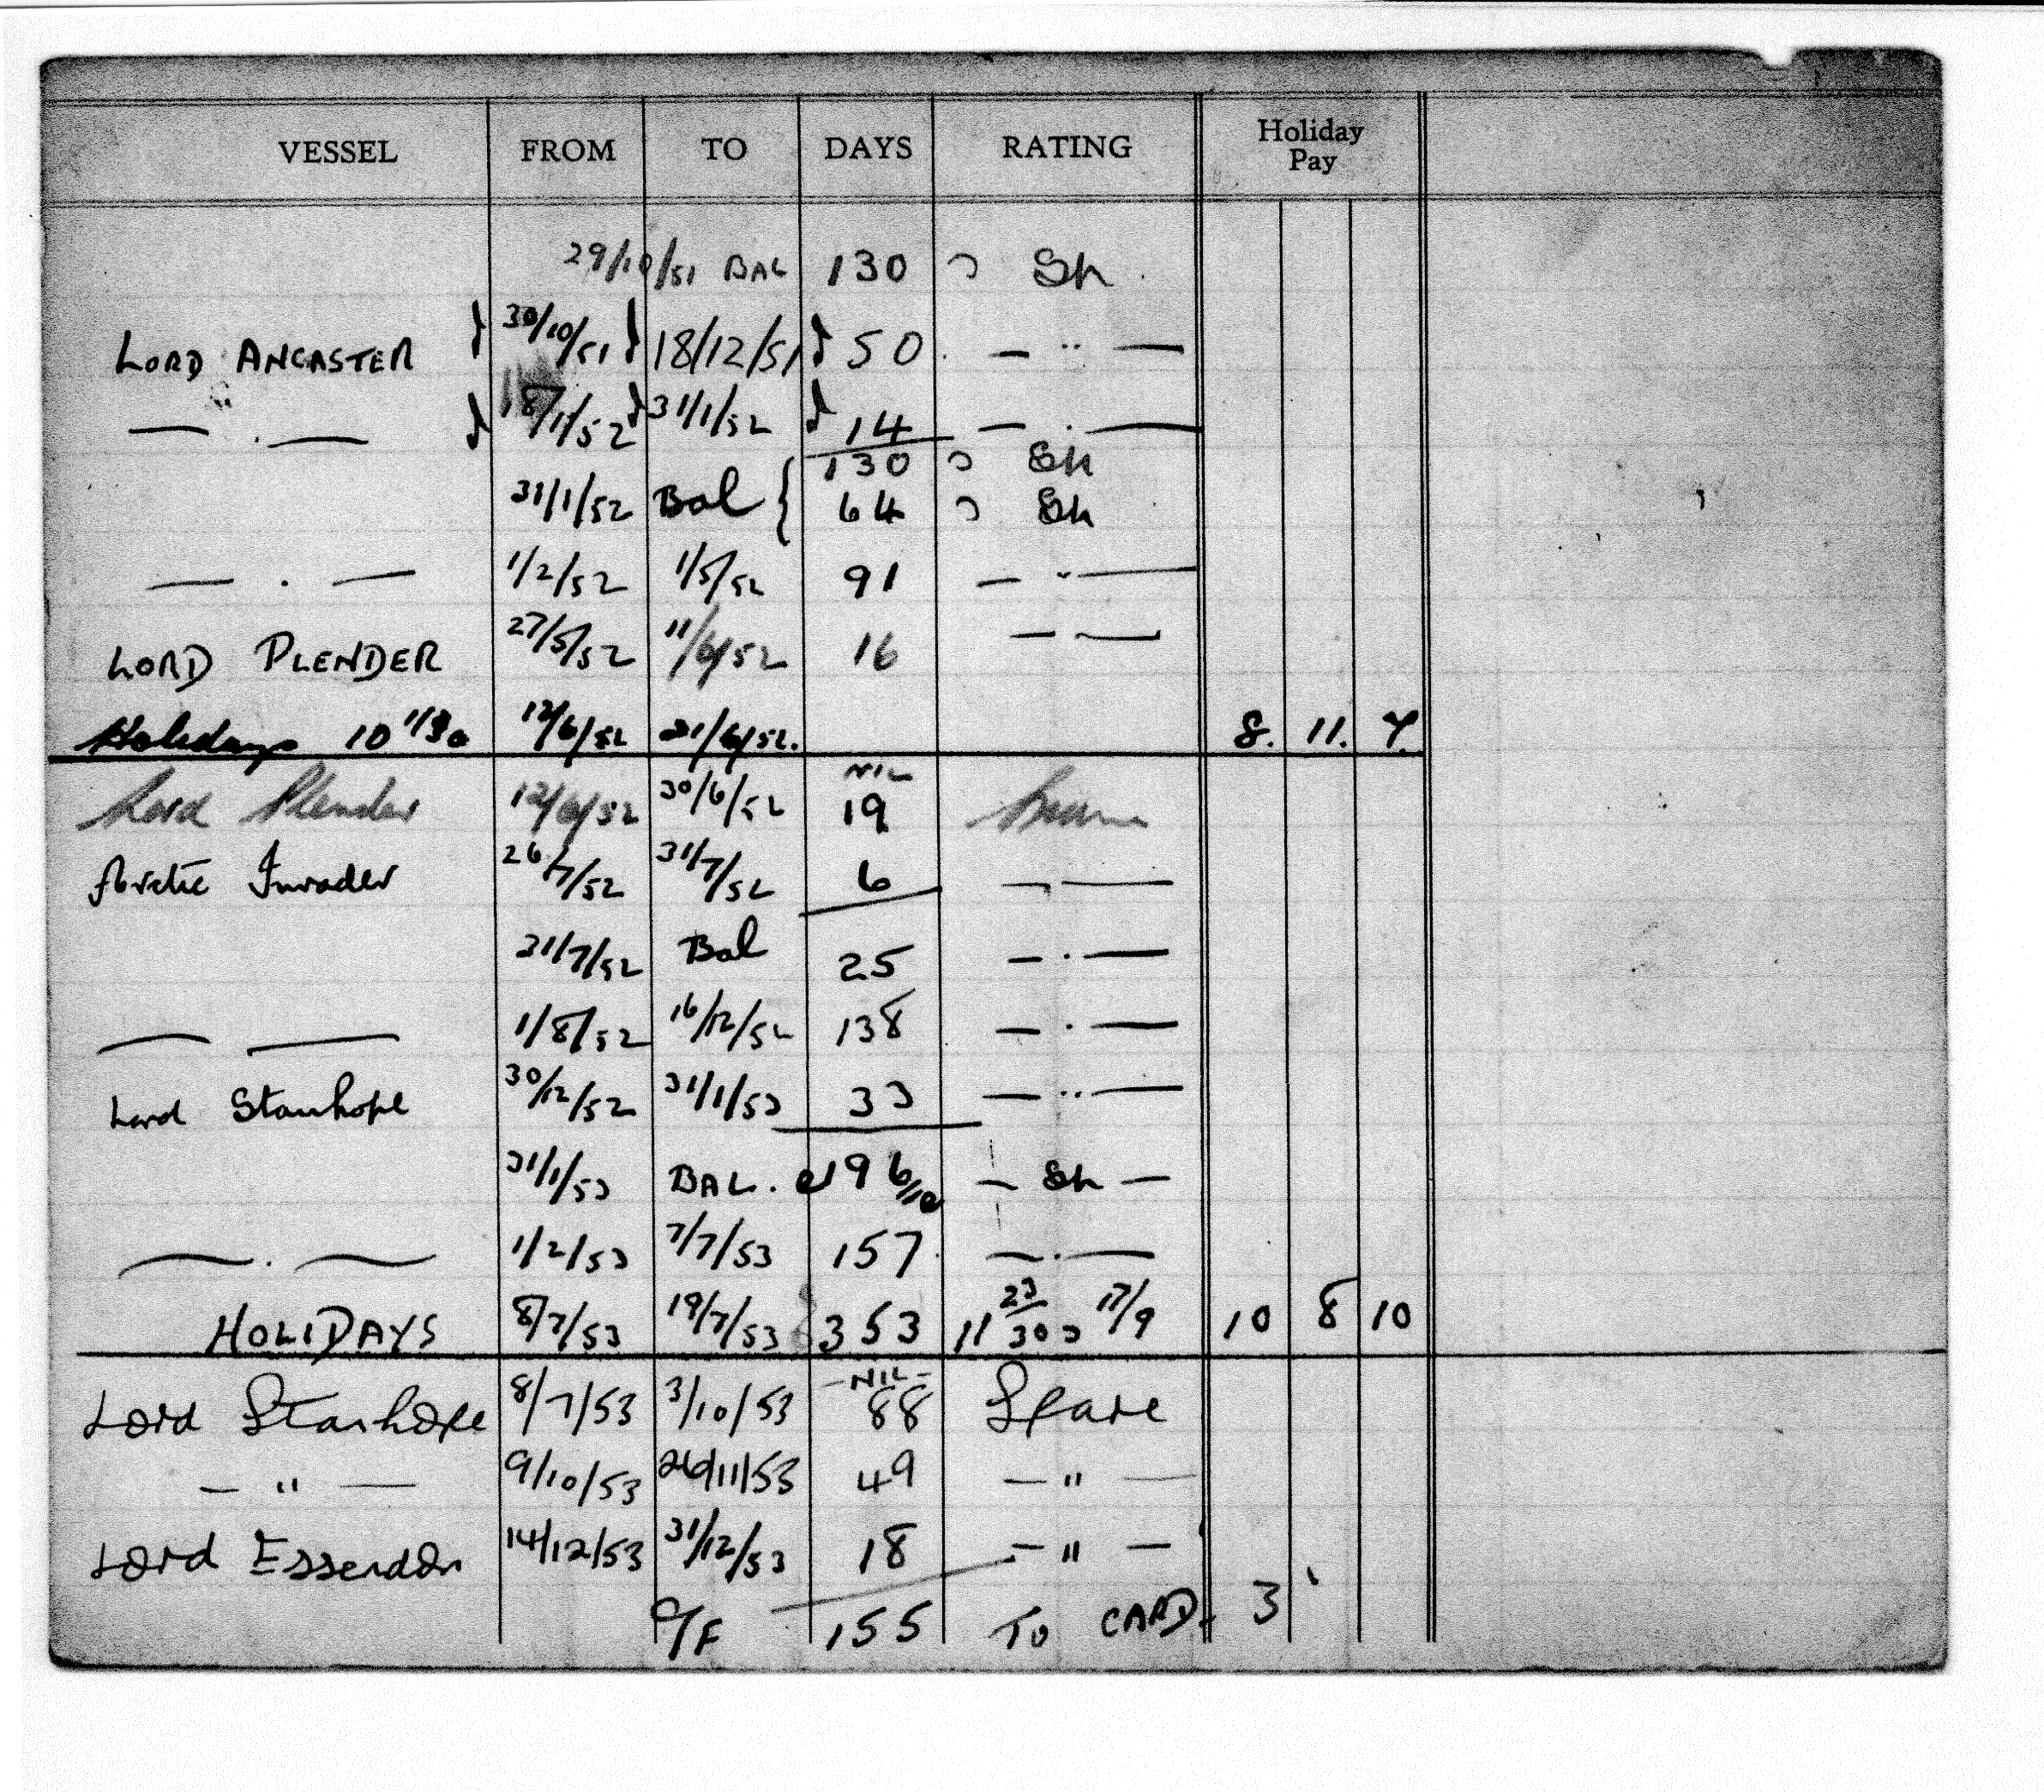 VESSEL FROM TO DAYS RATING Holiday Pay
29/10/51 BAL 130 Sh
LORD ANCASTER 30/10/51 18/12/51 50 — " —
— " — 18/1/52 31/1/52 14 — " —
130 Sh
31/1/52 Bal 64 Sh
— " — 1/2/52 1/5/52 91 — " —
LORD PLENDER 27/5/52 11/6/52 16 — —
Holidays 10 12/6/52 21/6/52. 8. 11. 7.
NIL
Lord Plender 12/6/52 30/6/52 19
Arctic Invader 26/7/52 31/7/52 6 — " —
31/7/52 Bal 25 — " —
— — 1/8/52 16/12/52 138 — " —
Lord Stanhope 30/12/52 31/1/53 33 — " —
31/1/53 BAL. 196 — Sh —
— " — 1/2/53 7/7/53 157 — " —
HOLIDAYS 8/7/53 19/7/53 353 11 23/30 17/9 10 8 10
— NIL —
Lord Stanhope 8/7/53 3/10/53 88 Spare
— " — 9/10/53 26/11/53 49 — " —
Lord Essendon 14/12/53 31/12/53 18 — " —
C/F 155 TO CARD. 3